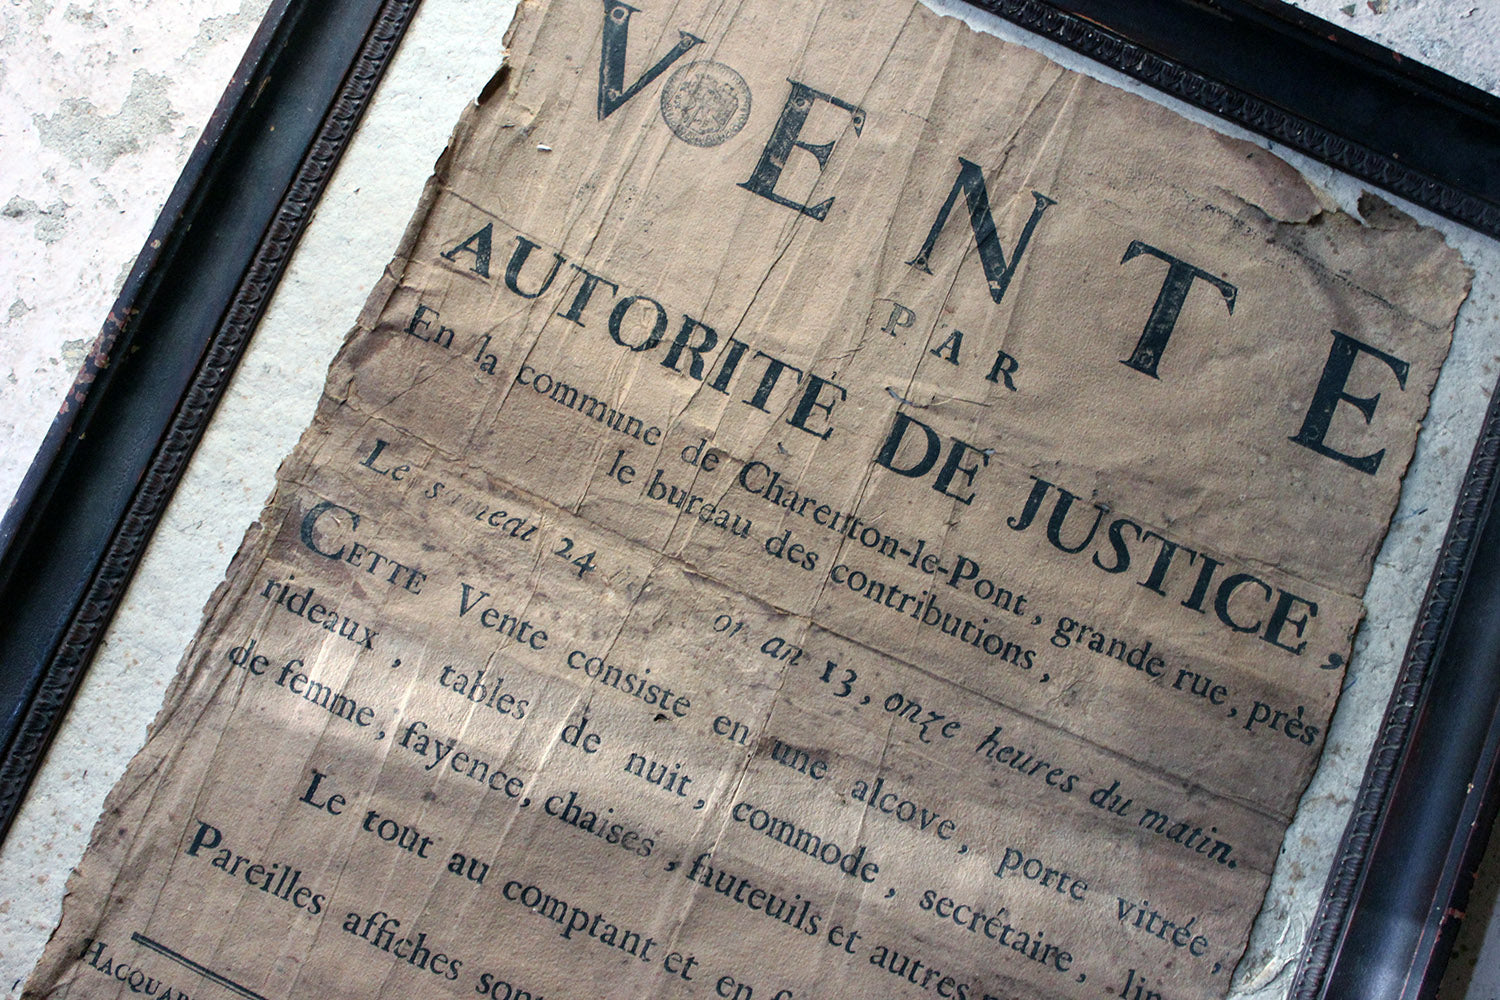 VENTE
PAR
AUTORITÉ DE JUSTICE,
En la commune de Charenton-le-Pont, grande rue, près
le bureau des contributions,
Le samedi 24 an 13, onze heures du matin.
CETTE Vente consiste en une alcove, porte vitrée,
rideaux, tables de nuit, commode, secrétaire,
de femme, fayence, chaises, fauteuils et autres
Le tout au comptant et en
Pareilles affiches sont